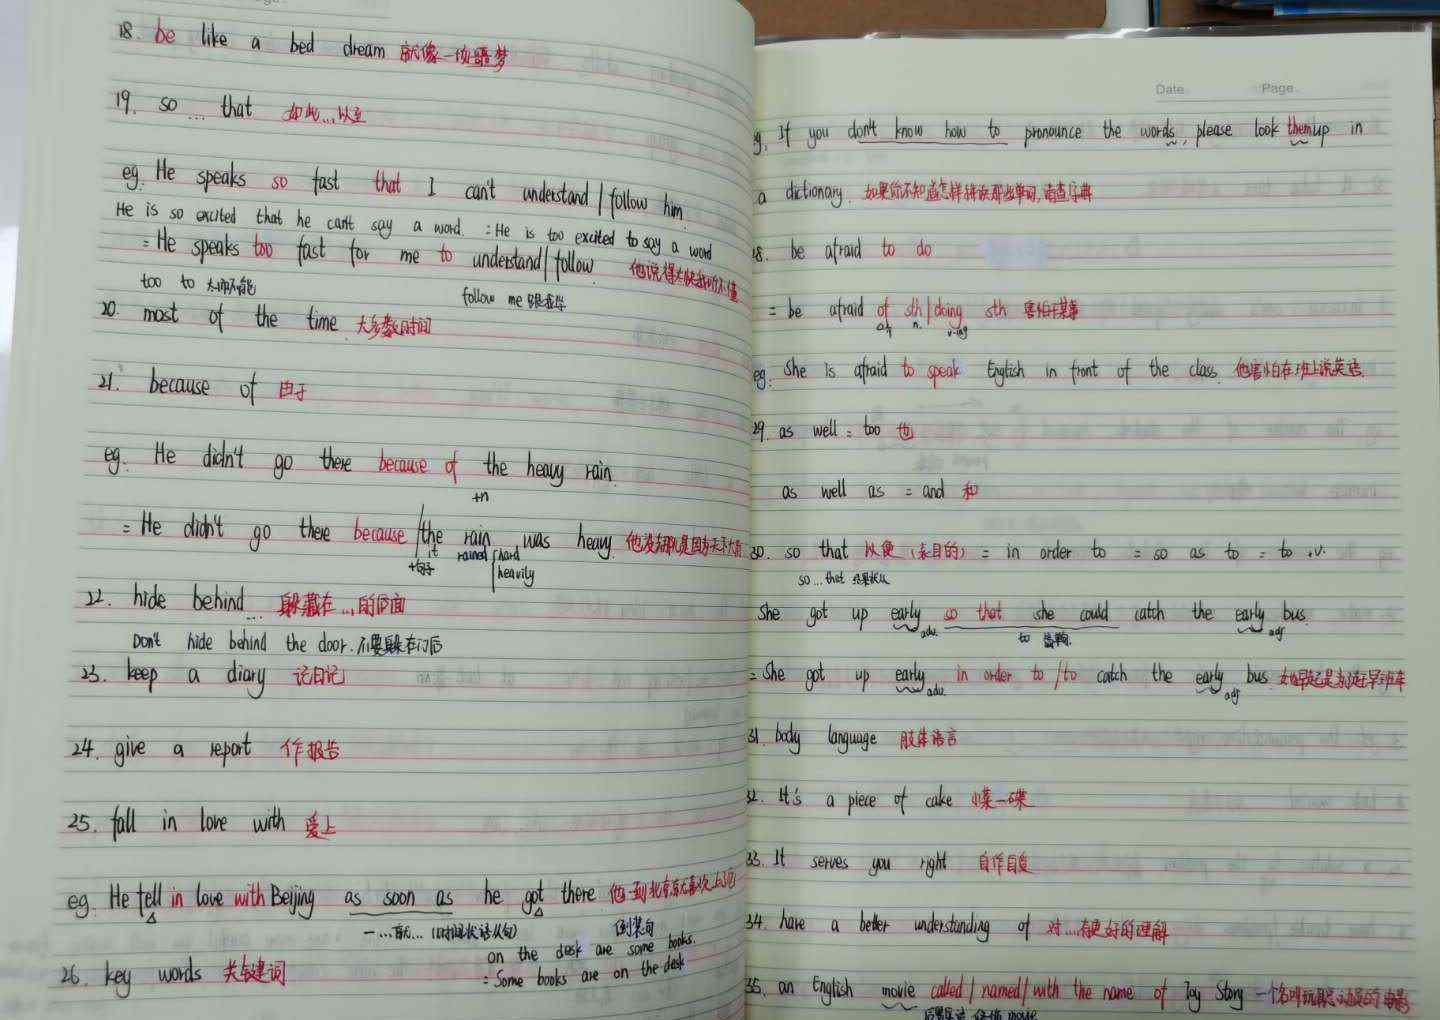 18. be like a bed dream 就像一场噩梦
19. so ... that 如此...以至
eg. He speaks so fast that I can't understand / follow him.
He is so excited that he can't say a word. = He is too excited to say a word
= He speaks too fast for me to understand / follow. 他说得太快我听不懂
too to 太而不能
follow me 跟我学
20. most of the time 大多数时间
21. because of 由于
eg. He didn't go there because of the heavy rain.
+n
= He didn't go there because / the rain was heavy. 他没去那儿是因为天下大雨
+句子 it rained hard
heavily
22. hide behind ... 躲藏在...的后面
Don't hide behind the door. 不要躲在门后
23. keep a diary 记日记
24. give a report 作报告
25. fall in love with 爱上
eg. He fell in love with Beijing as soon as he got there 他一到北京就喜欢上了它
一...就... (时间状语从句) 倒装句
on the desk are some books.
26. key words 关键词
= Some books are on the desk
Date. Page.
eg. If you don't know how to pronounce the words, please look them up in
a dictionary. 如果你不知道怎样拼读那些单词,请查字典
28. be afraid to do
= be afraid of sth / doing sth 害怕某事
n. v-ing
eg. She is afraid to speak English in front of the class. 他害怕在班上说英语.
29. as well = too 也
as well as = and 和
30. so that 以便 (表目的) = in order to = so as to = to +v.
so ... that 结果状从
She got up early so that she could catch the early bus.
adv. to adj
= She got up early in order to / to catch the early bus. 她早起是为了赶早班车
adv. adj
31. body language 肢体语言
32. It's a piece of cake 小菜一碟
33. It serves you right 自作自受
34. have a better understanding of 对...有更好的理解
35. an English movie called / named / with the name of Toy Story 一个名叫玩具总动员的电影
movie